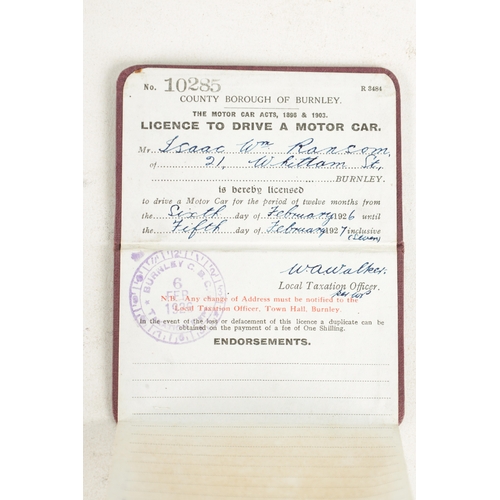 No. 10285 R 3484
COUNTY BOROUGH OF BURNLEY.
THE MOTOR CAR ACTS, 1896 & 1903.
LICENCE TO DRIVE A MOTOR CAR.
Mr. Isaac Wm Ransom,
of 21, Whittam St,
BURNLEY.
is hereby licensed
to drive a Motor Car for the period of twelve months from
the Sixth day of February 1926 until
the Fifth day of February 1927 inclusive
(seven)
WAWalker
Local Taxation Officer.
BURNLEY C.B.C.
6
FEB
N.B. Any change of Address must be notified to the
Local Taxation Officer, Town Hall, Burnley.
In the event of the loss or defacement of this licence a duplicate can be
obtained on the payment of a fee of One Shilling.
ENDORSEMENTS.